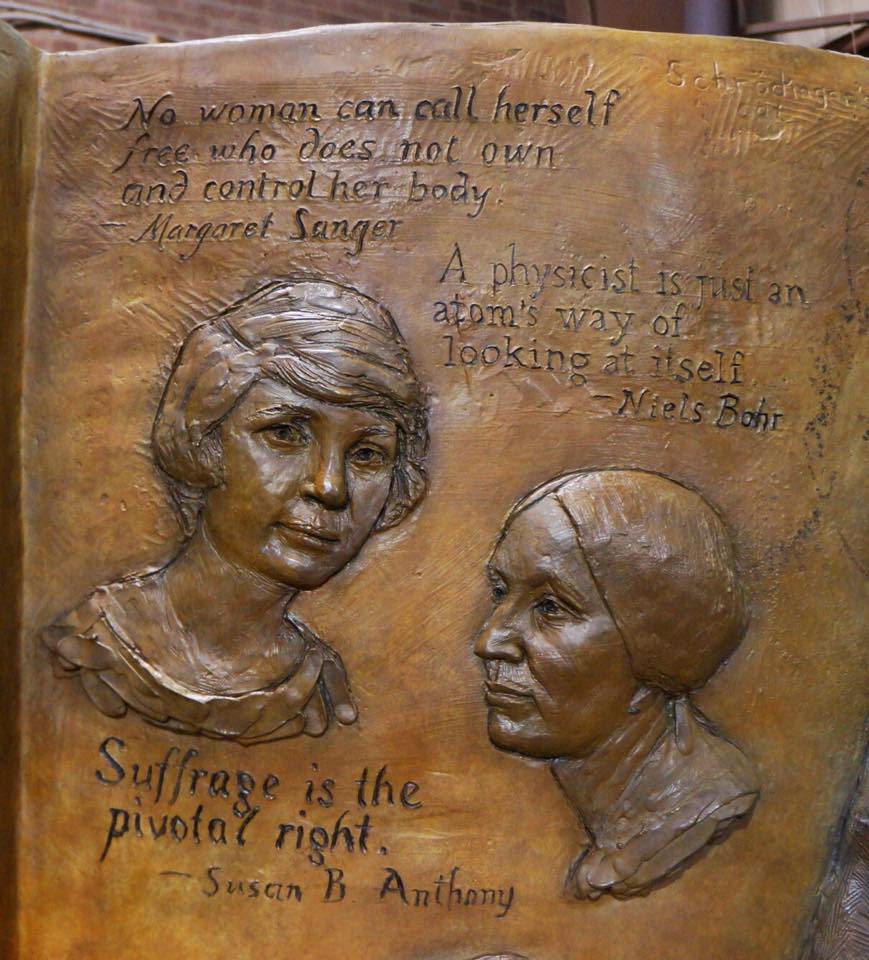 No woman can call herself
free who does not own
and control her body.
— Margaret Sanger
Schrödinger's
cat
A physicist is just an
atom's way of
looking at itself
— Niels Bohr
Suffrage is the
pivotal right.
— Susan B Anthony